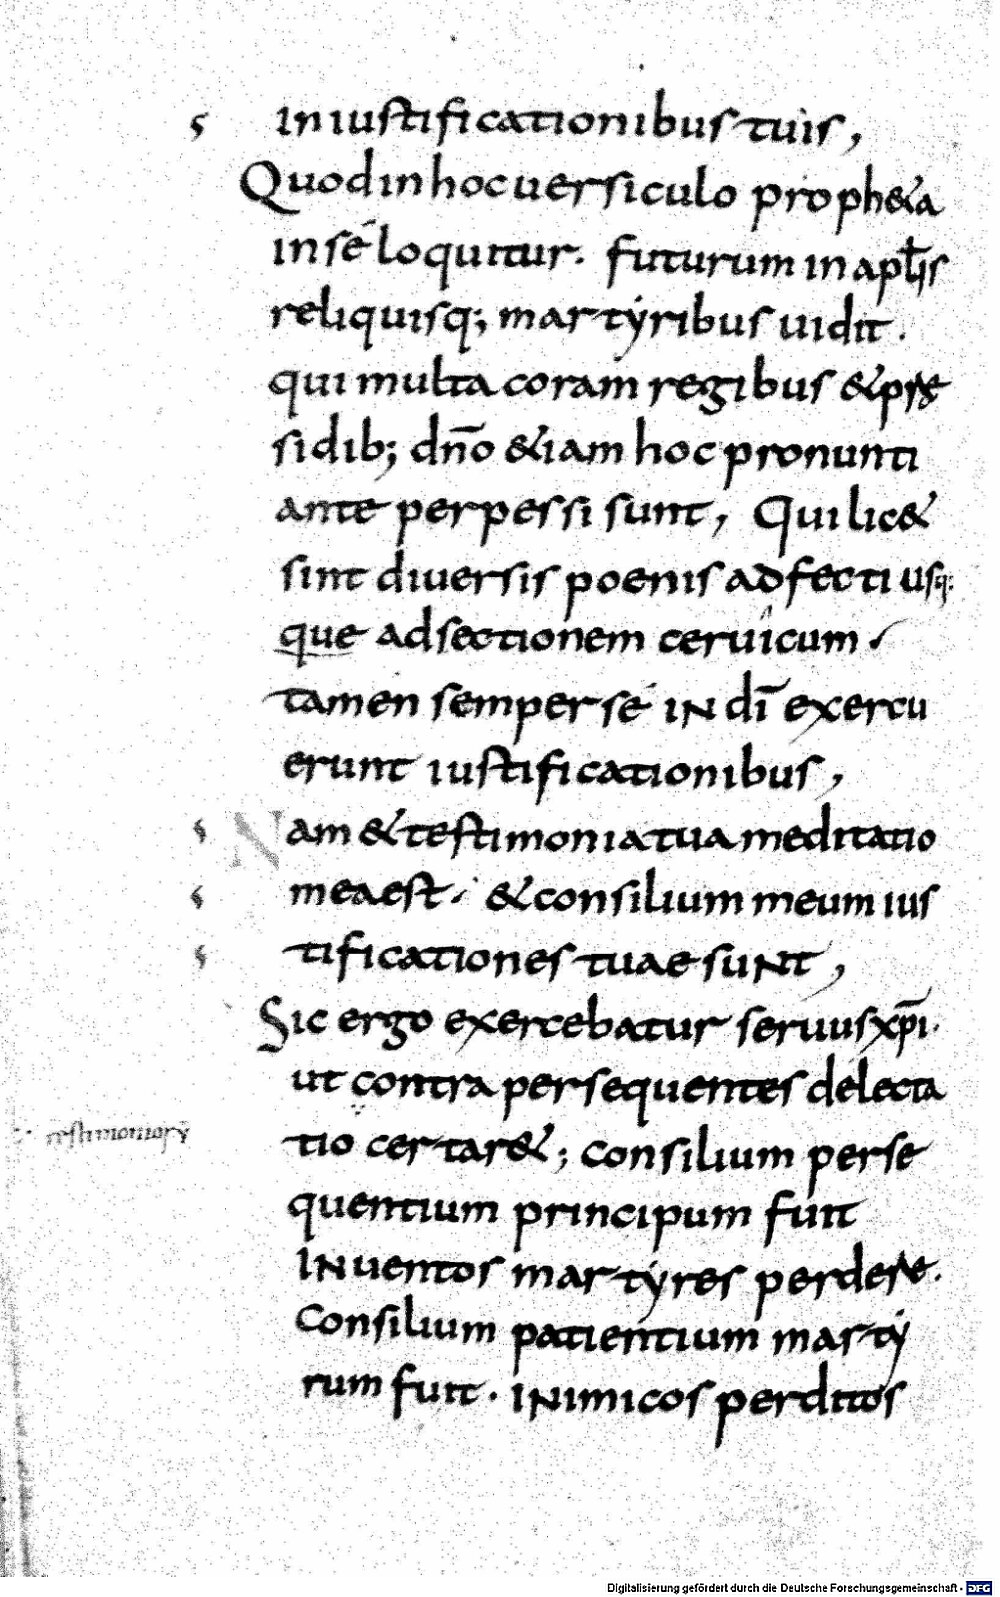 in iustificationibus tuis,
Quod in hoc uersiculo proph&a
in sé loquitur. futurum in apłis
reliquisq; martÿribus uidit.
qui multa coram regibus & prę
sidib; dn̄o &iam hoc pronunti
ante perpessi sunt, Qui lic&
sint diuersis poenis adfecti usq:
que ad sectionem ceruicum.
tamen semper sé in dī exercu
erunt iustificationibus,
Nam & testimonia tua meditatio
mea est. & consilium meum ius
tificationes tuae sunt,
Sic ergo exercebatur seruus xp̄i.
ut contra persequentes delecta
testimoniorū
tio certar&; consilium perse
quentium principum fuit
inuentos martÿres perdere.
Consilium patientium martÿ
rum fuit. inimicos perditos
Digitalisierung gefördert durch die Deutsche Forschungsgemeinschaft - DFG